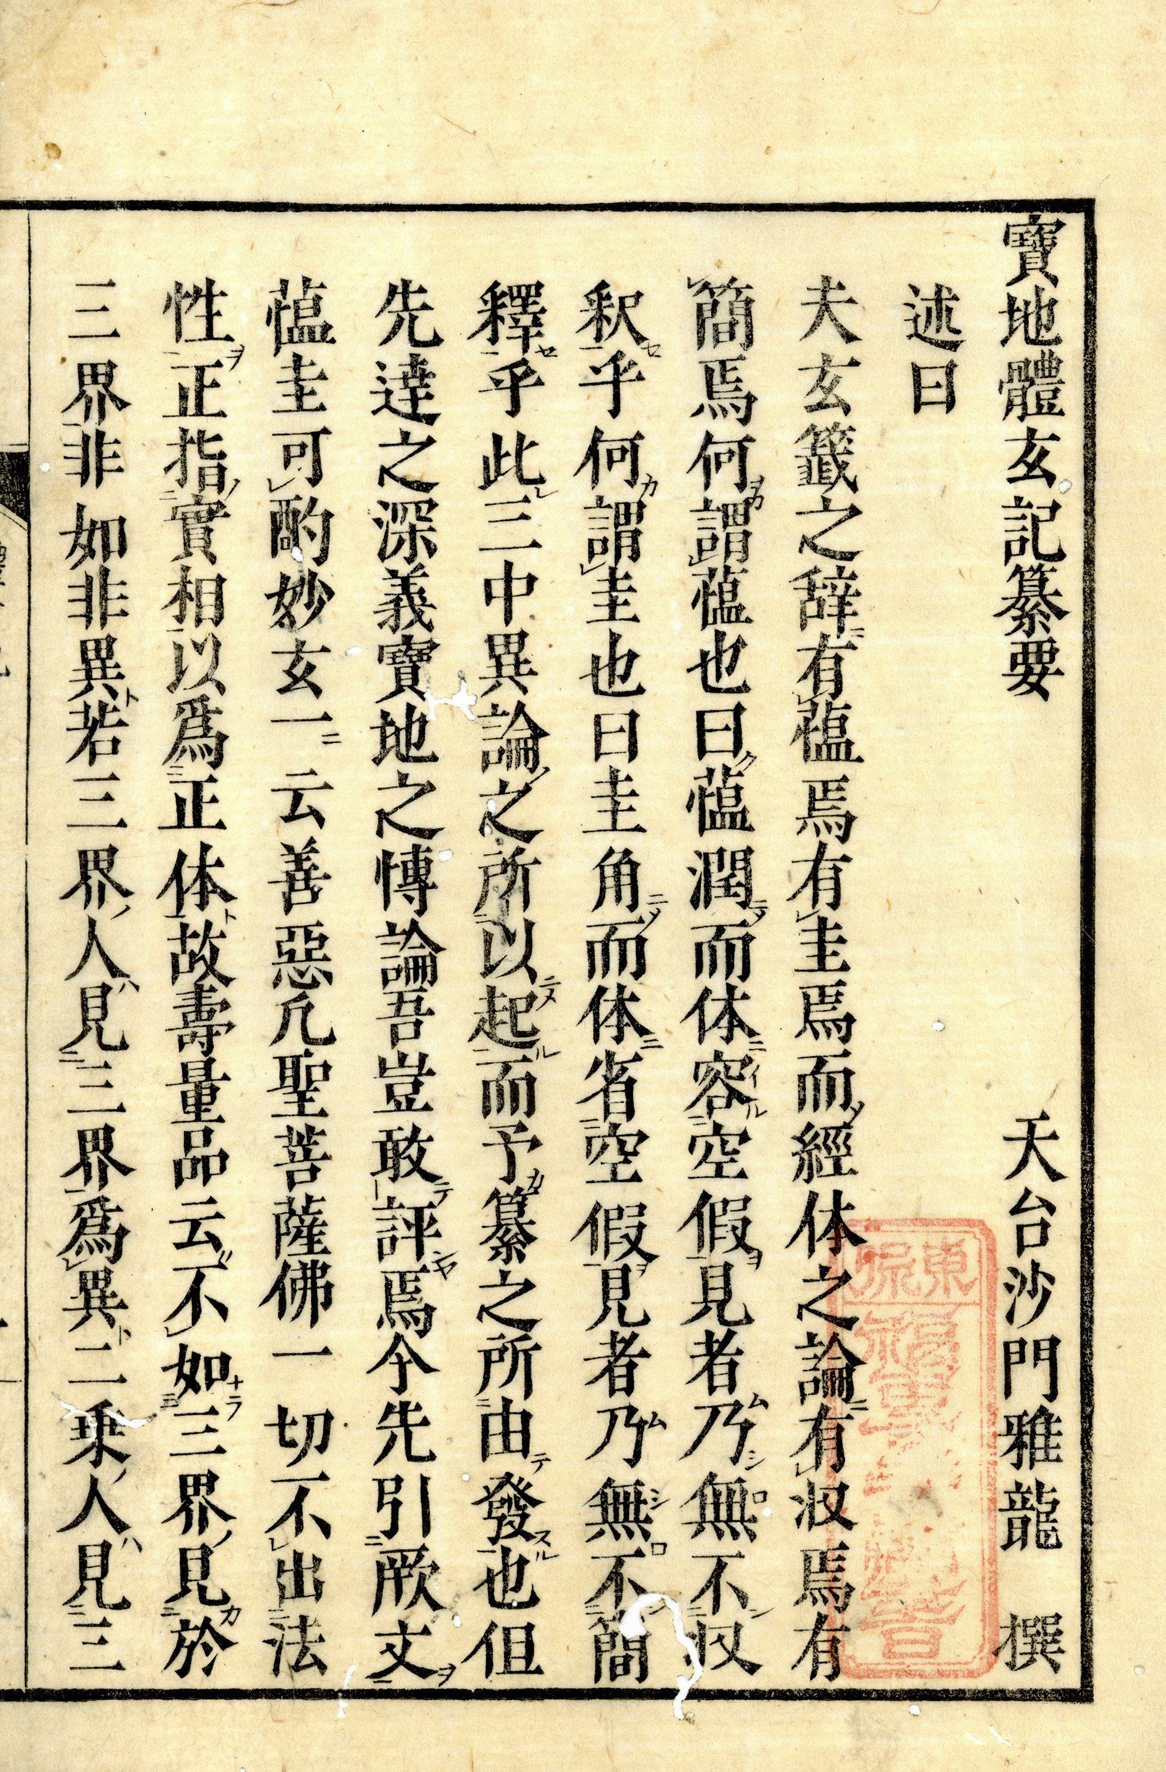 寶地體玄記纂要　天台沙門雅龍　撰
述曰
夫玄籤之辞有蕰焉有圭焉而經体之論有収焉有
簡焉何謂蕰也曰蕰潤而体容空假見者乃無不収
釈乎何謂圭也曰圭角而体省空假見者乃無不簡
釋乎此三中異論之所以起而予纂之所由發也但
先達之深義寶地之慱論吾豈敢評焉今先引厥文
蕰圭可酌妙玄一云善惡凡聖菩薩佛一切不出法
性正指實相以爲正体故壽量品云不如三界見於
三界非如非異若三界人見三界爲異二乗人見三